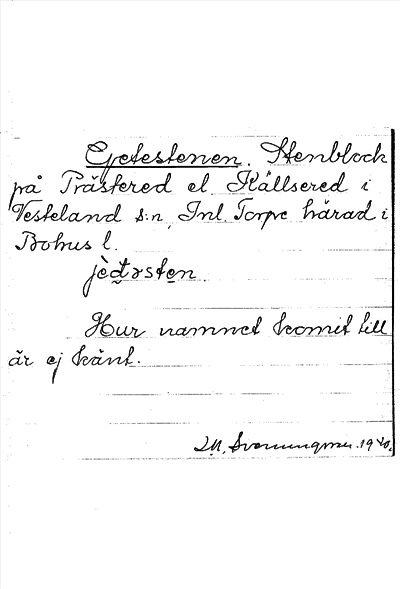 Gjetestenen. Stenblock
på Prästered el. Källsered i
Vesteland s:n, Inl. Torpe härad i
Bohus l.
jèdərsten
Hur namnet komit till
är ej känt.
1940.